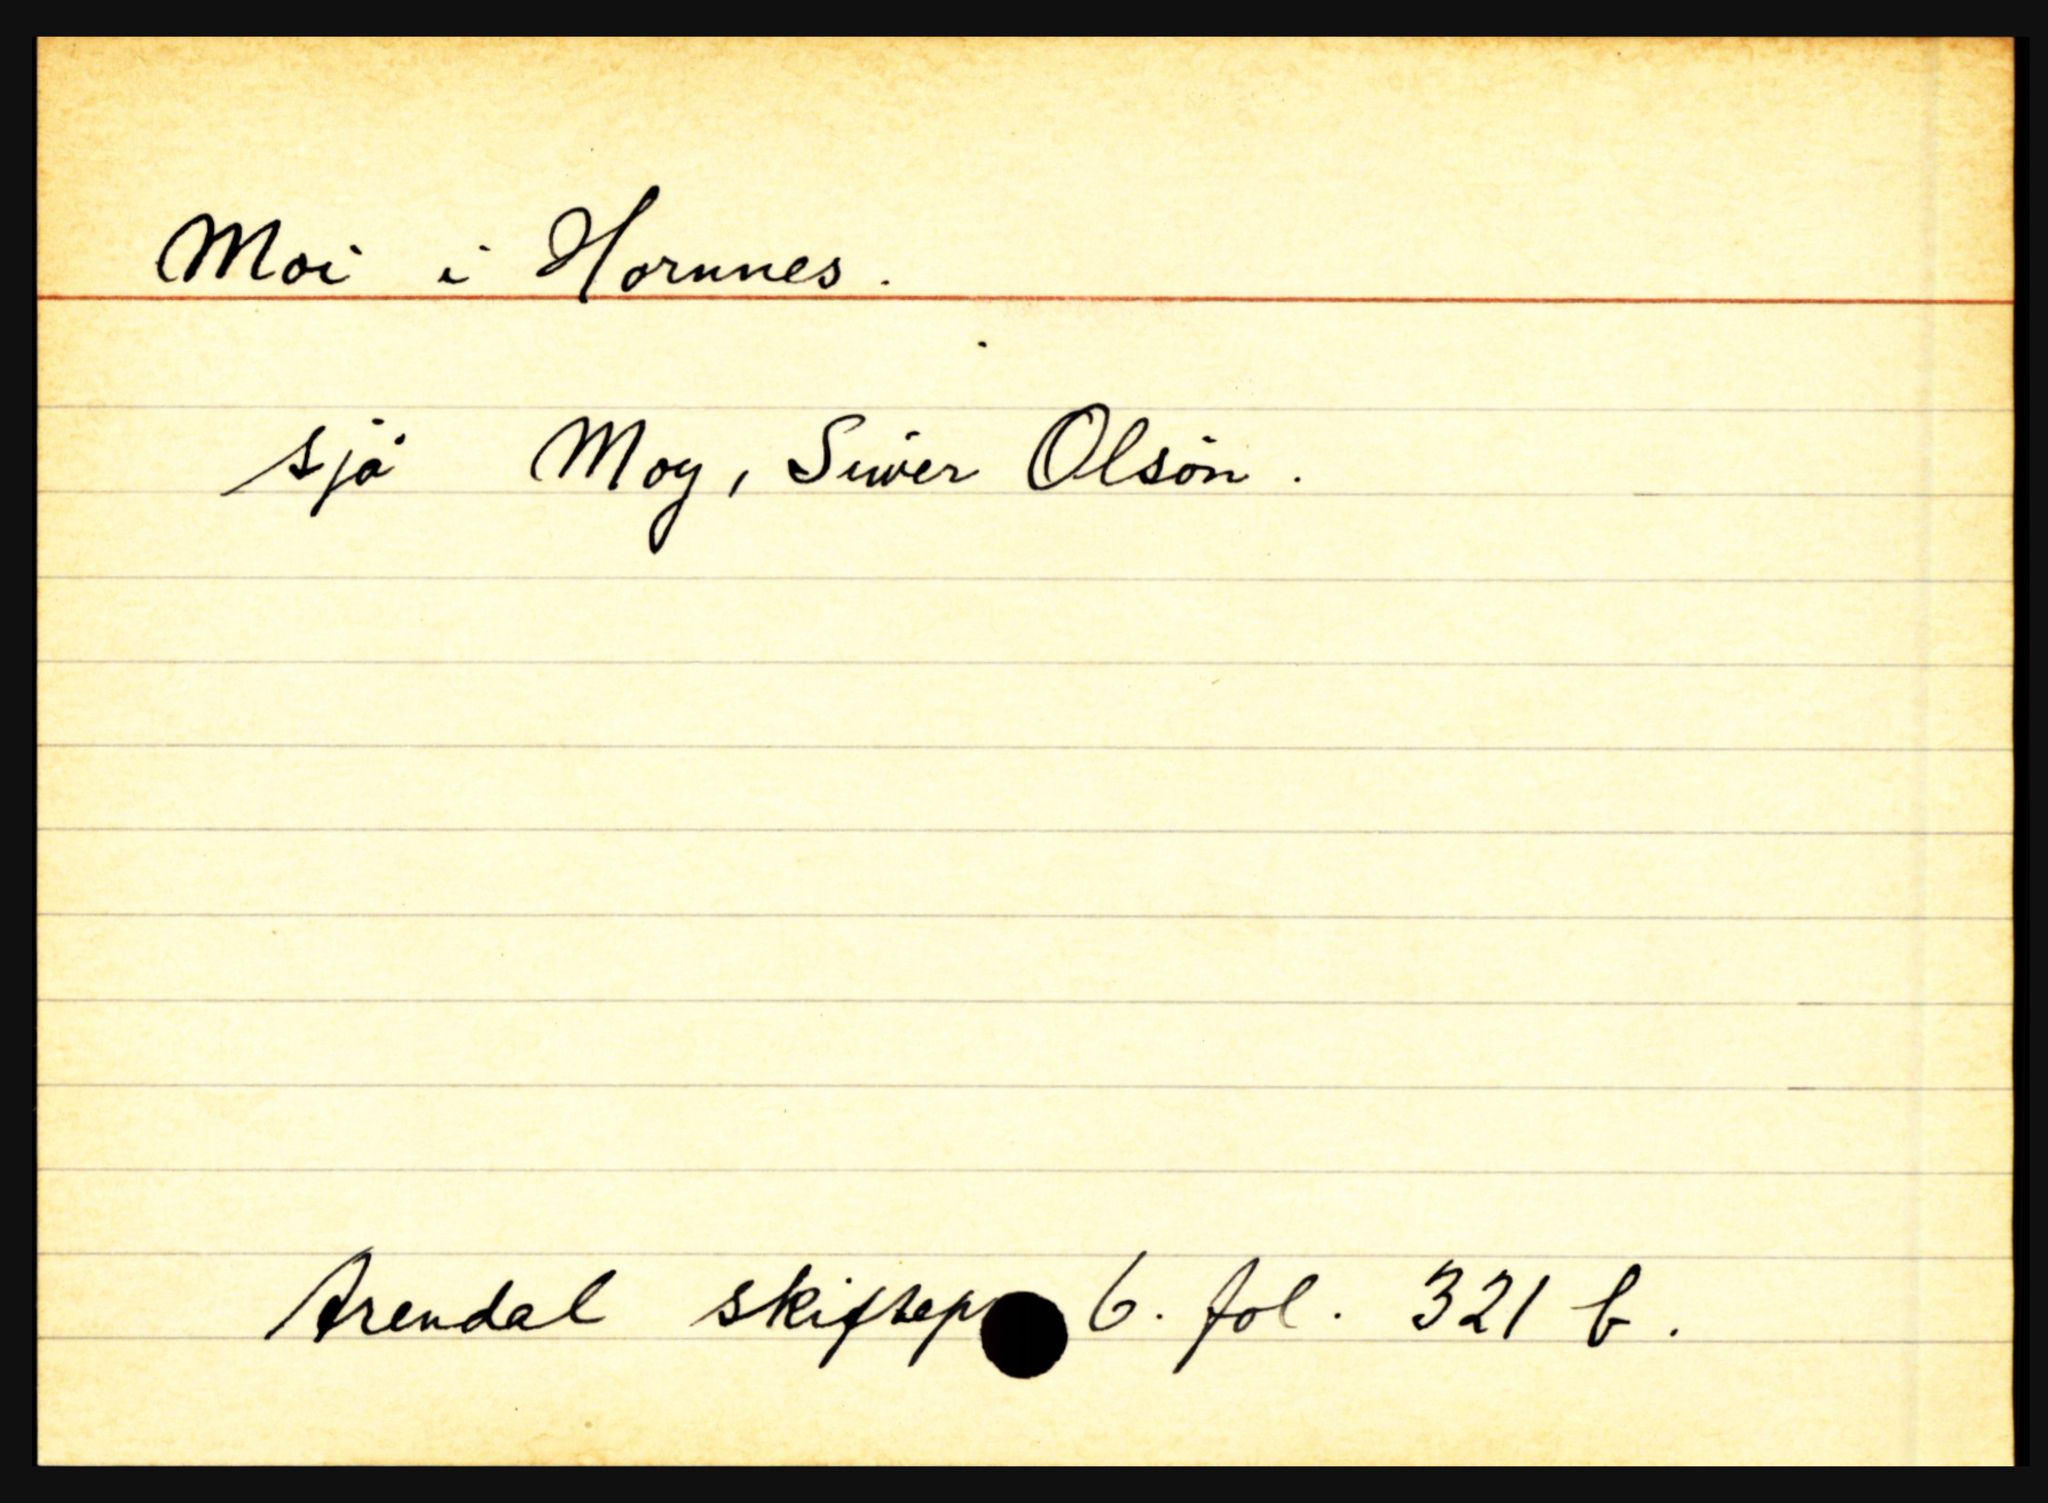 Moi i Hornnes.
sjå Moy, Siwer Olsön.
Arendal skiftepr 6. fol. 321 b.